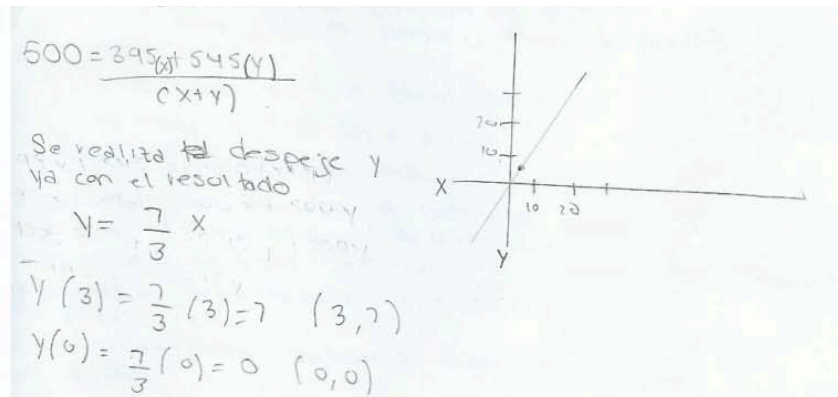 500 = 395(x)+ 545(y)
(x+y)
Se realiza el despeje y
ya con el resultado
y = 7/3 x
y (3) = 7/3 (3)=7 (3,7)
y(0) = 7/3 (0)= 0 (0,0)
20
10
X
10 20
y